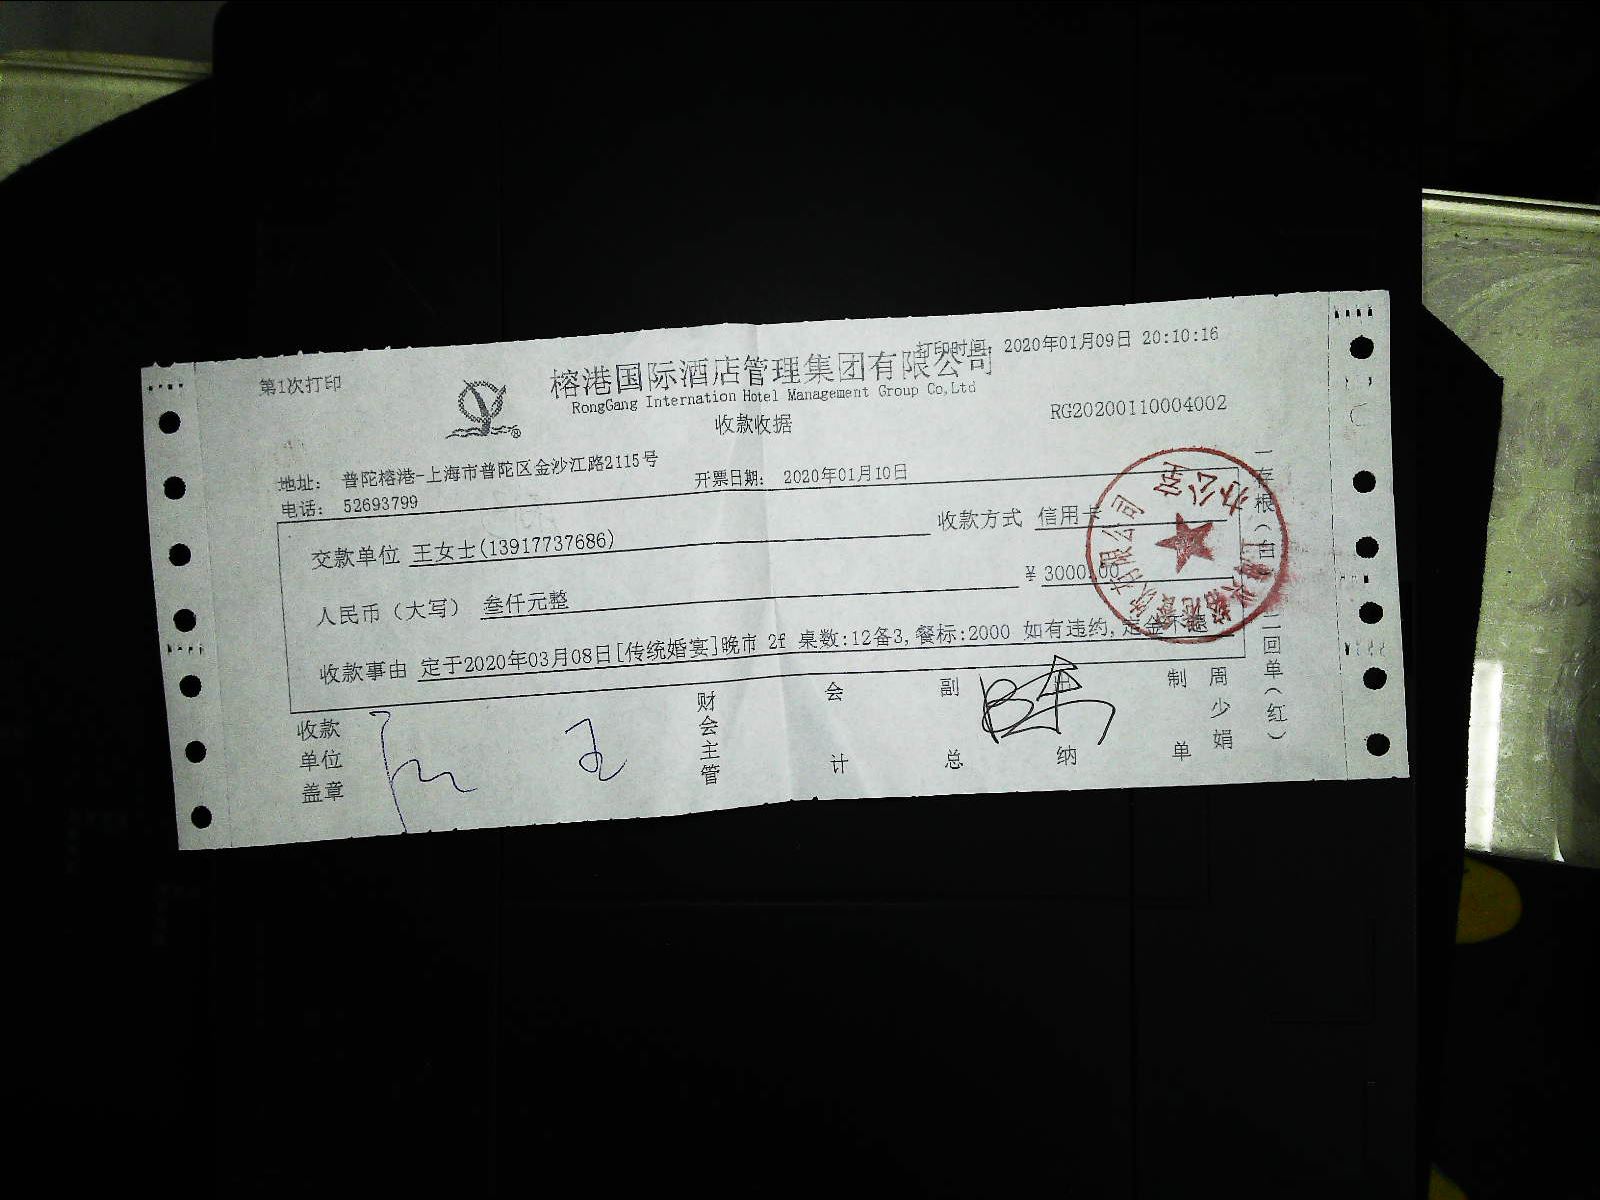 第1次打印
打印时间: 2020年01月09日 20:10:16
榕港国际酒店管理集团有限公司
RongGang Internation Hotel Management Group Co,Ltd
收款收据
RG20200110004002
地址: 普陀榕港-上海市普陀区金沙江路2115号
电话: 52693799
开票日期: 2020年01月10日
交款单位 王女士(13917737686)
收款方式 信用卡
人民币（大写） 叁仟元整
¥ 3000.00
收款事由 定于2020年03月08日[传统婚宴]晚市 2f 桌数:12备3,餐标:2000 如有违约,定金不退
收款单位盖章
财会主管
会计
副总
出纳
制单
周少娟
一存根(白)
二回单(红)
有限公司
办公室